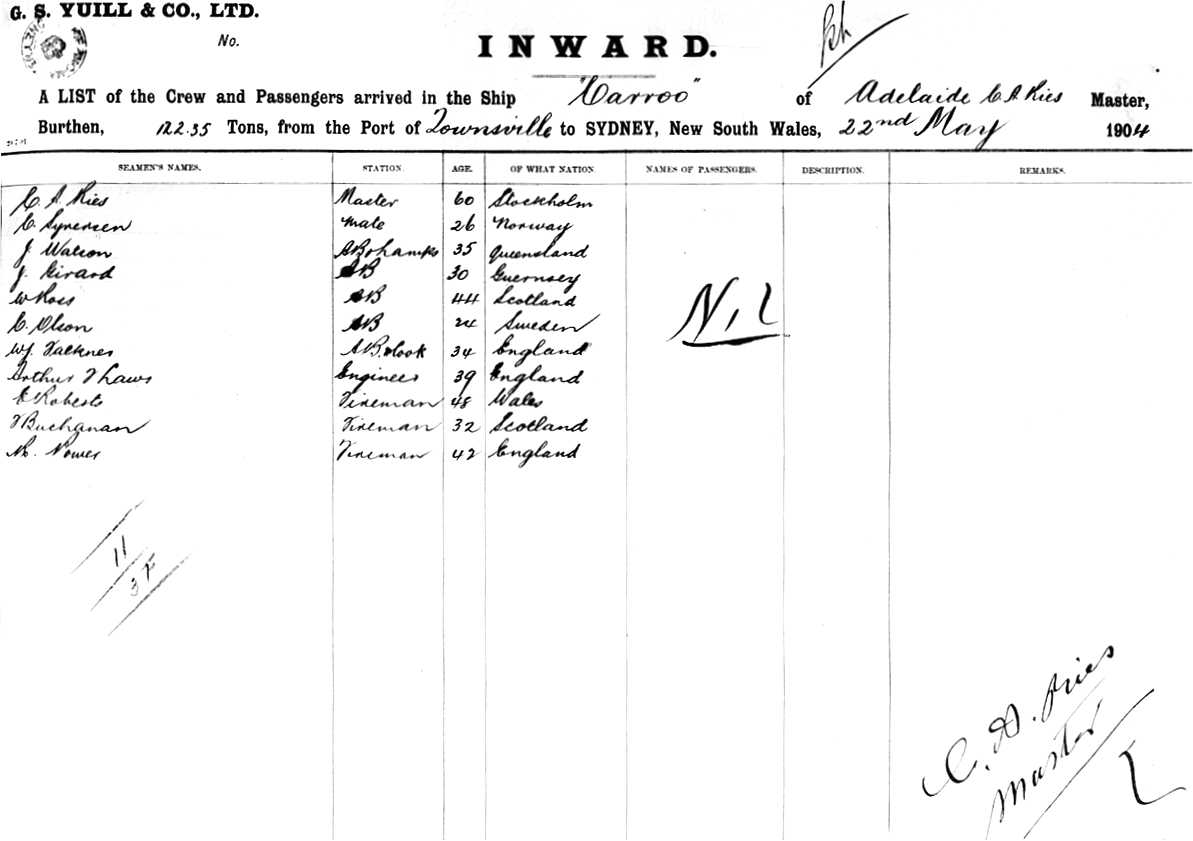 G. S. YUILL & CO., LTD.
No.
INWARD.
A LIST of the Crew and Passengers arrived in the Ship "Carroo" of Adelaide C A Ries Master,
Burthen, 122.35 Tons, from the Port of Townsville to SYDNEY, New South Wales, 22nd May 1904
SEAMEN'S NAMES. STATION. AGE. OF WHAT NATION NAMES OF PASSENGERS. DESCRIPTION. REMARKS.
C. A. Ries Master 60 Stockholm
C. Synersen Mate 26 Norway
J. Watson AB & Lamps 35 Queensland
J. Girard AB 30 Guernsey
W Ross AB 44 Scotland
C. Olson AB 24 Sweden
WJ. Falkner AB. & Cook 34 England
Arthur T Laws Engineer 39 England
E Roberts Fireman 48 Wales
T Buchanan Fireman 32 Scotland
Fireman 42 England
Nil
11
C. A. Ries
Master